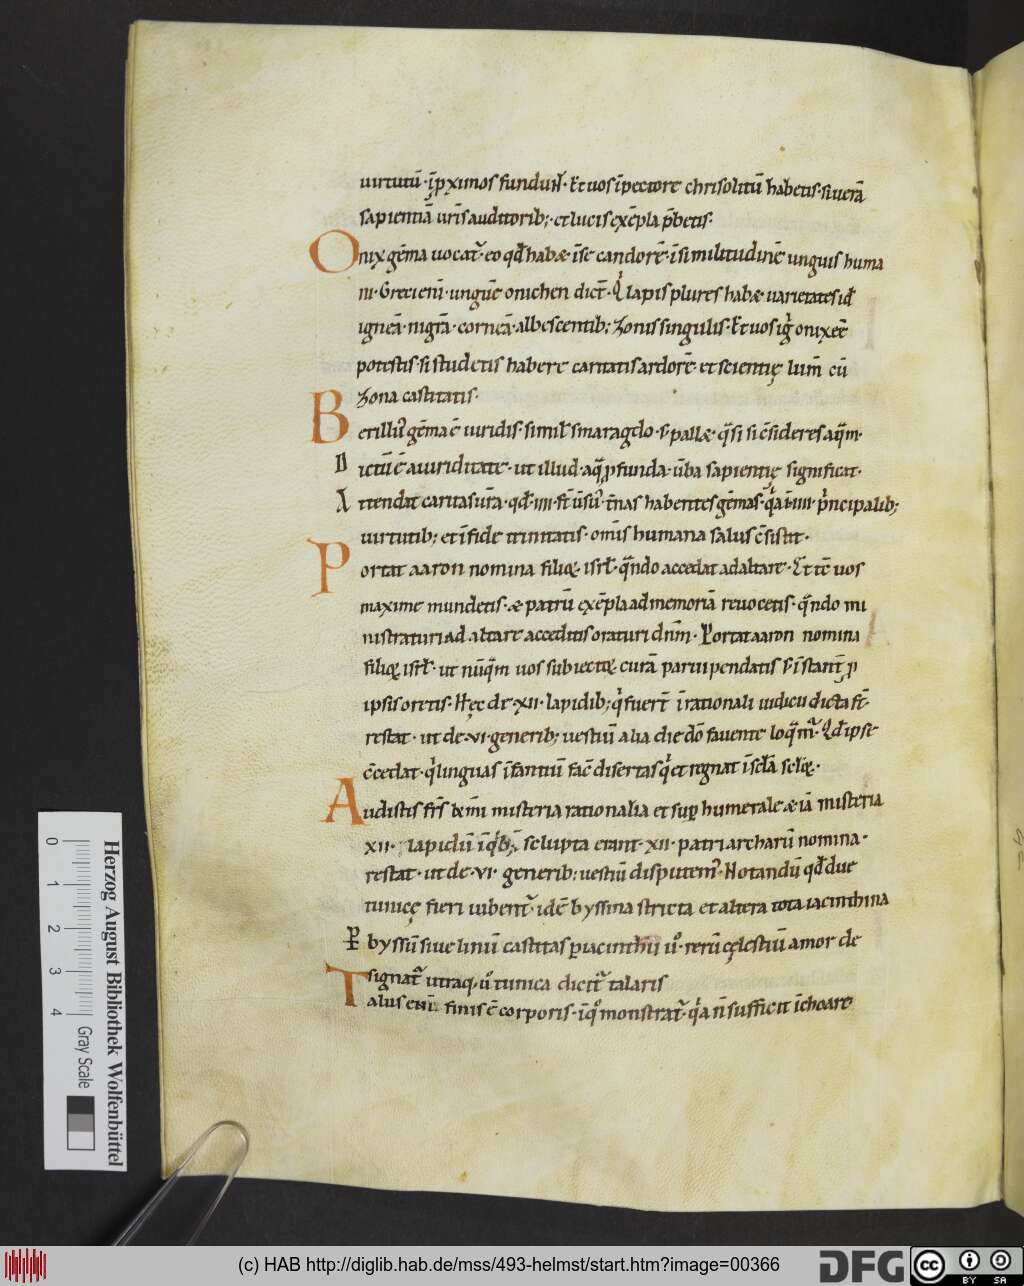 uirtutū· ī p̱ximos fundūt̄· Et uos ī pectore chrisolitū habetis· si uerā
sapientiā ur̄is auditorib; · et lucis exēpla p̄betis·
Onix gēma uocat᷑· eo qd̄ habæ· ī se candorē· ī similitudinē unguis huma
ni· Greci eni᷑· unguē onichen dict̄· Q lapis plures habæ uarietates id᷑
igneā· nigrā· corneā· albescentib; zonis singulis· Et uos igͥ onix eē
potestis· si studetis habere caritatis ardorē· et scientię lum̄ cū
zona castitatis·
Berillus gēma ē uiridis· simil᷑ smaragdo· s; pallæ· qͣsi si c̄sideres aqͣm·
Dictū ē a uiriditate· ut illud· aqͣ p̱funda· ūba sapientię significat·
Attendat caritas ur̄a· qd̄· IIII· st̄ ūsus t̄nas habentes gēmas· qͥa ī· IIII· pͥncipalib;
uirtutib; et ī fide trinitatis· omīs humana salus c̄sistit·
Portat aaron nomina filioꝝ· isrl̄· qͣndo accedat ad altare· Et tē uos
maxime mundetis· æ patrū exēpla ad memoriā reuocetis· qͣndo mi
nistraturi ad altare acceditis oraturi dn̄m· Portat aaron nomina
filioꝝ isrl̄· ut nūqͣm uos subiectoꝝ curā paruipendatis s; īstant᷑ p̱
ipsis oretis· Hęc de· XII· lapidib; qͥ fuer̄t ī rationali iudicii dicta st̄·
restat· ut de· VI· generib; uestiū alia die dō fauente loqͣm᷑· Qd̄ ipse
c̄cedat· qͥ linguas īfantiū fac̄ disertas qͥ et regnat ī scl̄a scl̄oꝝ·
Audistis fr̄s km̄i misteria rationalia et suꝑ humerale æ iā misteria
XII· lapidū ī qͥb; sculpta erant· XII· patriarcharū nomina·
restat· ut de· VI· generib; uestiū disputem᷒· Notandū qd̄ due
tunicę fieri iubent᷑· idē byssina stricta et altera tota iacinthina
Ꝑ byssū siue linū castitas ꝑ iacinthū ů· rerū cęlestiū amor de
signat᷑ utraq, ů tunica dicit᷑ talaris
Talus eni᷑ finis ē corporis· ī q̊ monstrat᷑· qͥa n̄ sufficit īchoare
0 1 2 3 4
Gray Scale
Herzog August Bibliothek Wolfenbüttel
(c) HAB http://diglib.hab.de/mss/493-helmst/start.htm?image=00366
DFG
cc BY SA